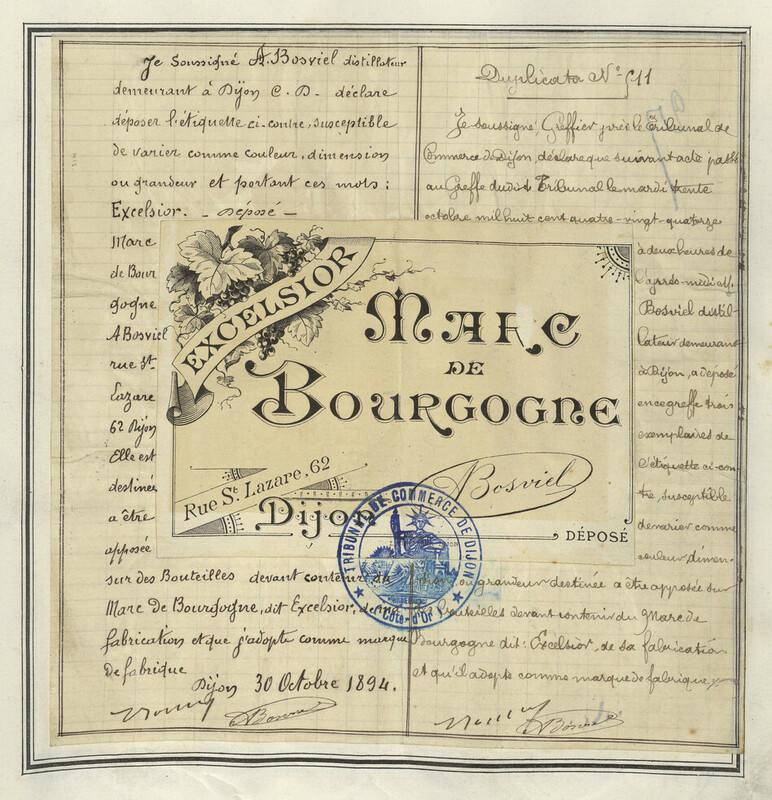 Je soussigné A. Bosviel distillateur
demeurant à Dijon C. D. déclare
déposer l'étiquette ci-contre, susceptible
de varier comme couleur, dimension
ou grandeur et portant ces mots :
Excelsior. - Déposé -
Marc
de Bour
gogne
A Bosviel
rue St
Lazare
62 Dijon
Elle est
destinée
a être
apposée
sur des Bouteilles devant contenir du
Marc de Bourgogne, dit Excelsior, de ma
fabrication et que j'adopte comme marque
de fabrique
Dijon 30 Octobre 1894.
A Bosviel
Duplicata No 511
Je soussigné Greffier près le Tribunal de
Commerce de Dijon, déclare que suivant acte
au Greffe dudit Tribunal le mardi trente
octobre mil huit cent quatre-vingt-quatorze
à deux heures de
l'après-midi M.
Bosviel distil-
lateur demeurant
à Dijon, a déposé
en ce greffe trois
exemplaires de
l'étiquette ci-con-
tre, susceptible
de varier comme
couleur, dimen-
sion, ou grandeur destinée a être apposée sur
Bouteilles devant contenir du Marc de
Bourgogne dit : Excelsior, de sa fabrication
et qu'il adopte comme marque de fabrique
A Bosviel
EXCELSIOR
MARC
DE
BOURGOGNE
Rue St. Lazare, 62
Dijon
Bosviel
DÉPOSÉ
TRIBUNAL DE COMMERCE DE DIJON
(Côte-d'Or)